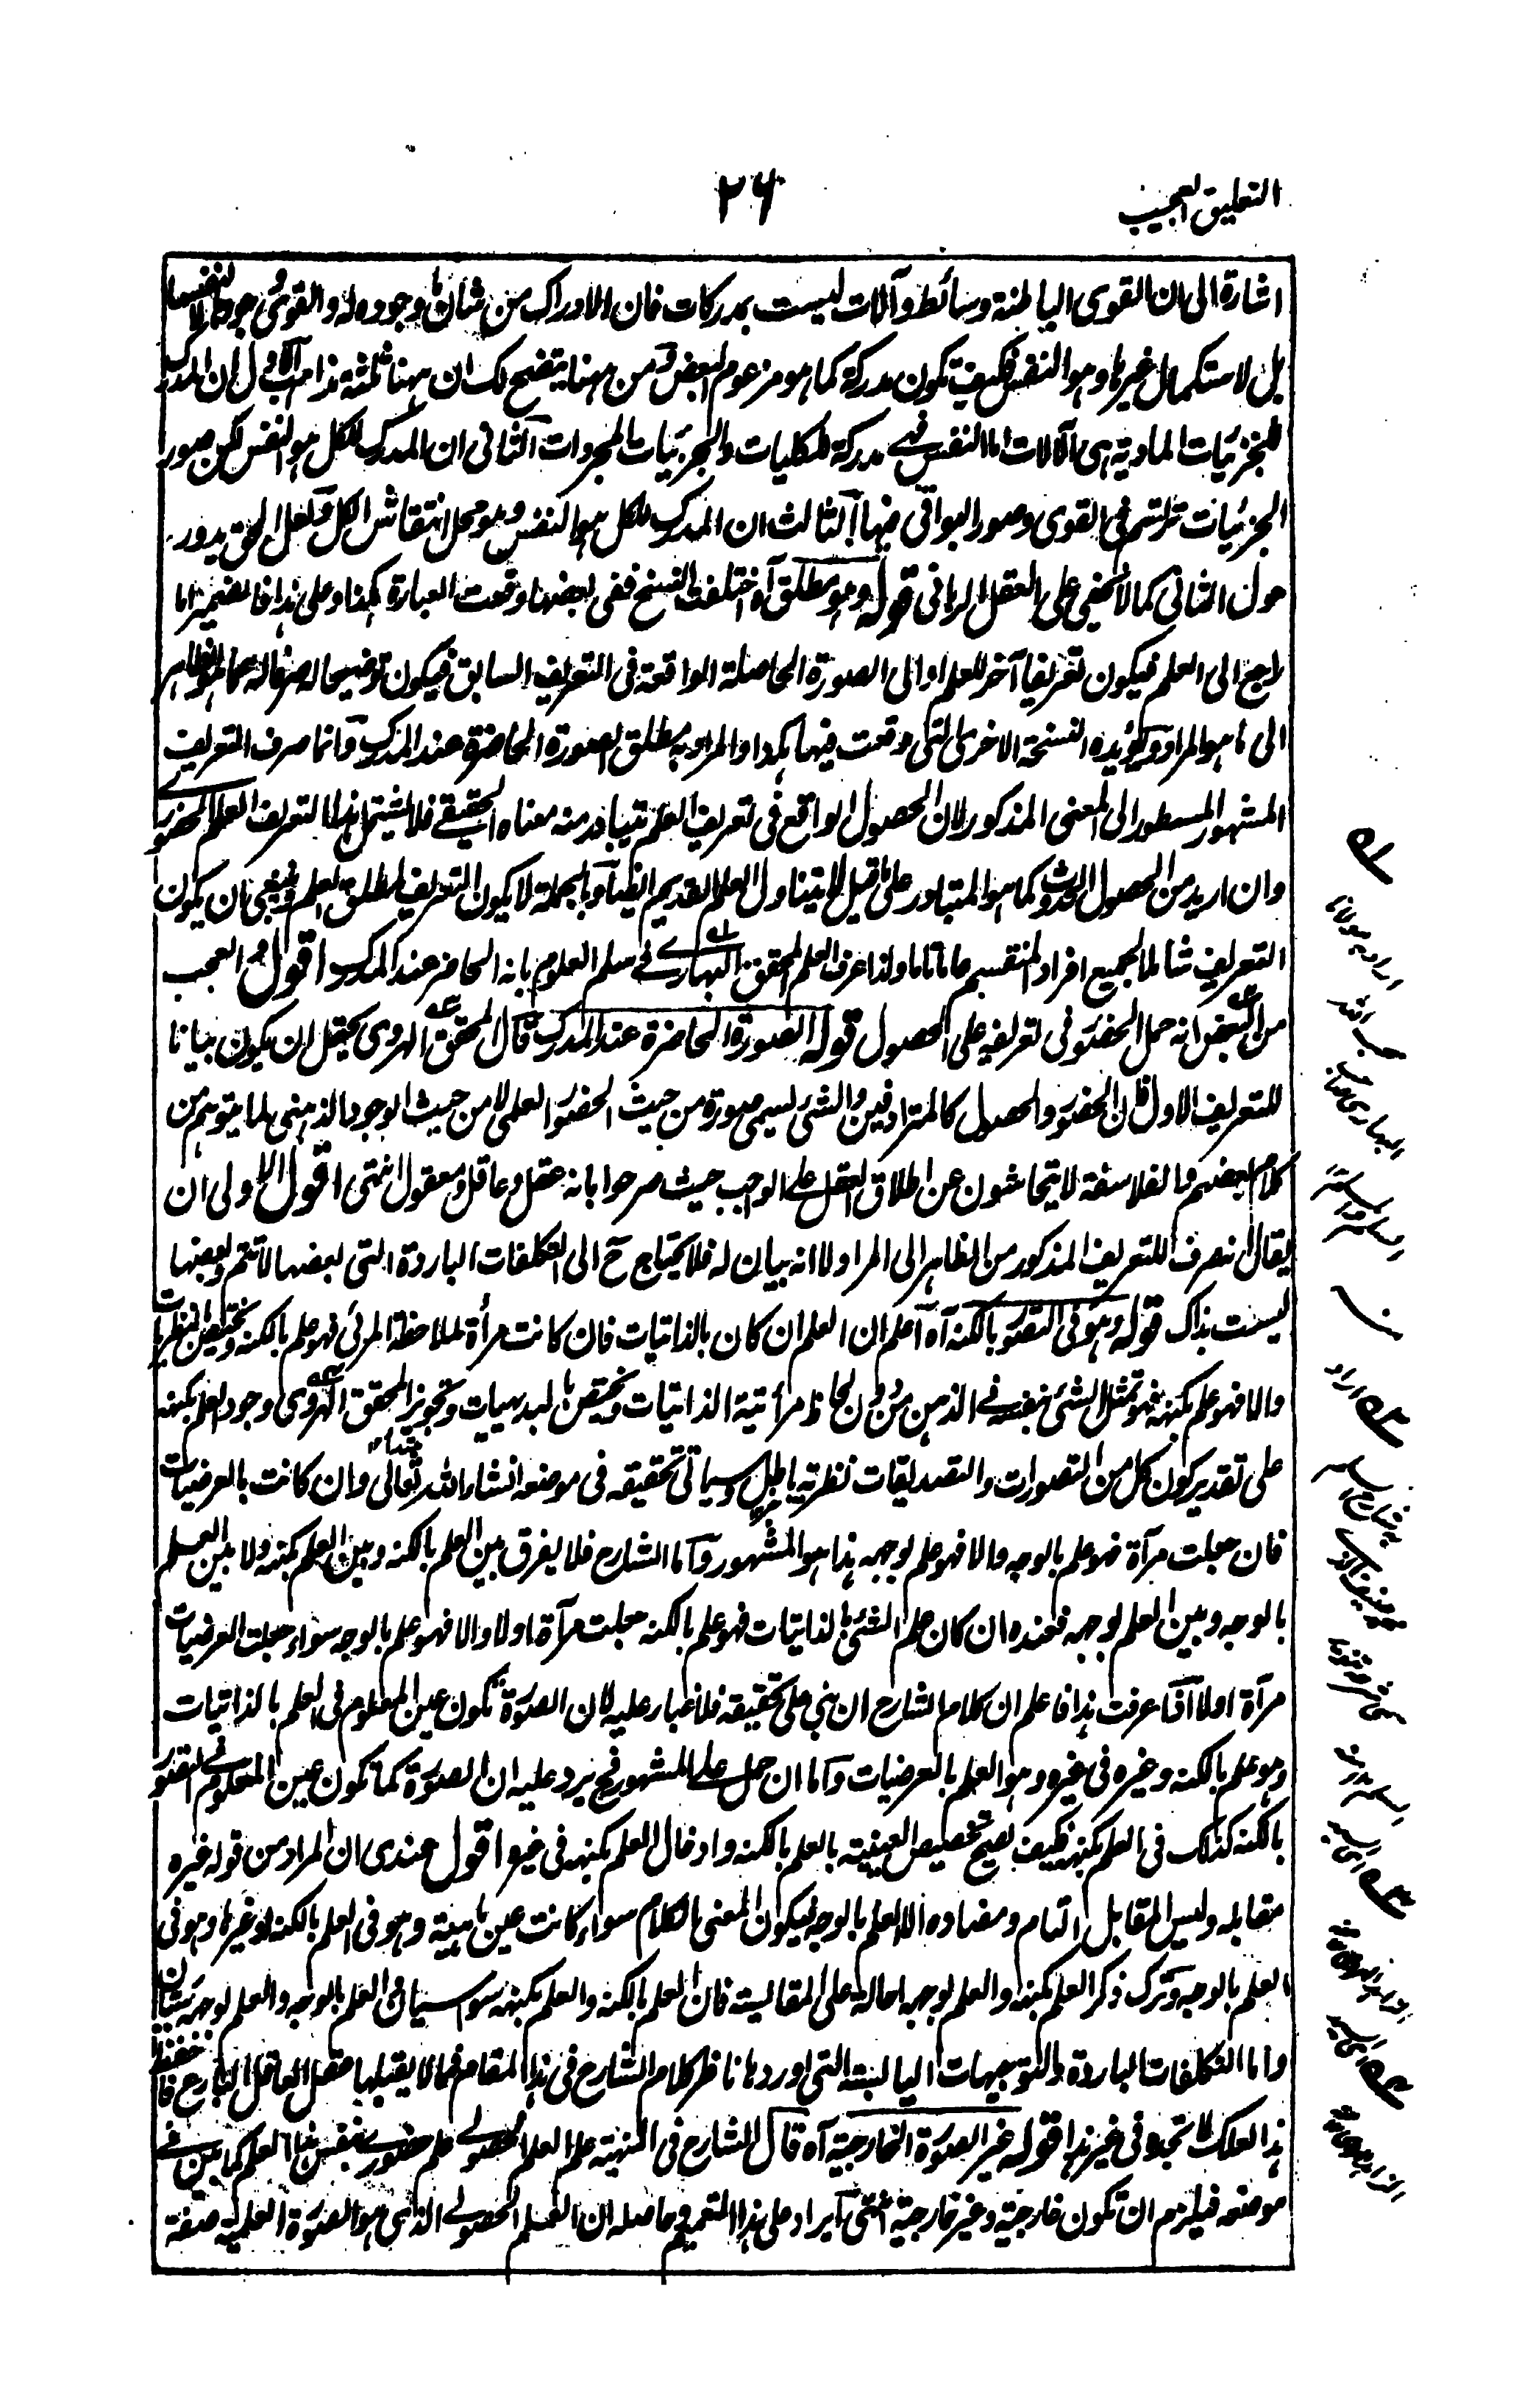 التعليق العجيب
٢٦
اشارة الى ان القوى الباطنة وسائط وآلات ليست بمدركات فان الادراك من شان ما وجوده له والقوى وجودها لا لنفسها
بل لاستكمال غيرها وهو النفس فكيف تكون مدركة كما هو مزعوم البعض ومن ههنا يتضح لك ان ههنا ثلثة مذاهب الاول ان المدرك
للجزئيات المادية هى الآلات اما النفس فهى مدركة للكليات والجزئيات المجردات الثانى ان المدرك للكل هو النفس لكن صور
الجزئيات ترتسم فى القوى وصور البواقى فيها الثالث ان المدرك للكل هو النفس وهو محل انتقاش الكل ولعل الحق يدور
حول الثانى كما لا يخفى على العقل الربانى قوله وهو مطلق آه اختلفت النسخ ففى بعضها وقعت العبارة هكذا وعلى هذا فالضمير اما
راجع الى العلم فيكون تعريفا آخر للعلم او الى الصورة الحاصلة الواقعة فى التعريف السابق فيكون توضيحا له صرفا له عما هو الظاهر
الى ما هو المراد ويؤيده النسخة الاخرى التى وقعت فيها هكذا والمراد به مطلق الصورة الحاضرة عند المدرك وانما صرف التعريف
المشهور المسطور الى المعنى المذكور لان الحصول الواقع فى تعريف العلم يتبادر منه معناه الحقيقى فلا يشتمل هذا التعريف العلم الحضورى
وان اريد من الحصول الحدوث كما هو المتبادر على ما قيل لا يتناول العلم القديم ايضا وبالجملة لا يكون التعريف لمطلق العلم وينبغى ان يكون
التعريف شاملا لجميع افراد المنقسم عاما تاما ولذا عرف العلم المحقق البهارى فى سلم العلوم بانه الحاضر عند المدرك اقول العجب
من البعض انه حمل الحضور فى تعريفه على الحصول قوله الصورة الحاضرة عند المدرك قال المحقق الهروى يحتمل ان يكون بيانا
للتعريف الاول فان الحضور والحصول كالمترادفين والشئ يسمى صورة من حيث الحضور العلمى لا من حيث الوجود الذهنى لما يتوهم من
كلام بعضهم والفلاسفة لا يتحاشون عن اطلاق العقل على الواجب حيث صرحوا بانه عقل وعاقل ومعقول انتهى اقول الاولى ان
يقال انه صرف للتعريف المذكور من الظاهر الى المراد لا انه بيان له فلا يحتاج ح الى التكلفات الباردة التى بعضها لا تتم وبعضها
ليست بذاك قوله وهو فى التصور بالكنه آه اعلم ان العلم ان كان بالذاتيات فان كانت مرأة لملاحظة المرئى فهو علم بالكنه ويختص بالنظريات
والا فهو علم بكنهه فهو تمثل الشئ بنفسه فى الذهن من دون لحاظ مرأتية الذاتيات ويختص بالبديهيات وتجويز المحقق الهروى وجود العلم بكنهه
على تقدير كون كل من التصورات والتصديقات نظرية باطل وسياتى تحقيقه فى موضعه انشاء الله تعالى وان كانت بالعرضيات
فان جعلت مرآة فهو علم بالوجه والا فهو علم بوجهه هذا هو المشهور واما الشارح فلا يفرق بين العلم بالكنه وبين العلم بكنهه ولا بين العلم
بالوجه وبين العلم بوجهه فعنده ان كان علم الشئ بالذاتيات فهو علم بالكنه جعلت مرآة اولا والا فهو علم بالوجه سواء جعلت العرضيات
مرآة اولا اذا عرفت هذا فاعلم ان كلام الشارح ان بنى على تحقيقه فلا غبار عليه لان الصورة تكون عين المعلوم فى العلم بالذاتيات
وهو علم بالكنه وغيره فى غيره وهو العلم بالعرضيات واما ان حمل على المشهور فح يرد عليه ان الصورة كما تكون عين المعلوم فى التصور
بالكنه كذلك فى العلم بكنهه فكيف يصح تخصيص العينية بالعلم بالكنه وادخال العلم بكنهه فى غيره اقول عندى ان المراد من قوله غيره
مقابله وليس المقابل التام ومضاده الا العلم بالوجه فيكون المعنى الكلام سواء كانت عين ماهيته وهو فى العلم بالكنه او غيرها وهو فى
العلم بالوجه وترك ذكر العلم بكنهه والعلم بوجهه احالة على المقايسة فان العلم بالكنه والعلم بكنهه سواسيان فى العلم بالوجه والعلم بوجهه سيان
واما التكلفات الباردة والتوجيهات اليابسة التى اوردها ناظر كلام الشارح فى هذا المقام فمما لا يقبلها عقل العاقل البارع فاحفظ
هذا لعلك لا تجده فى غير هذا قوله غير الصورة الخارجية آه قال الشارح فى المنهية علم العلم الحصولى علم حضورى بنفس هذا العلم كما بين فى
موضعه فيلزم ان تكون خارجية وغير خارجية انتهى ايراد على هذا التعميم وحاصله ان العلم الحصولى الذى هو الصورة العلمية صفة